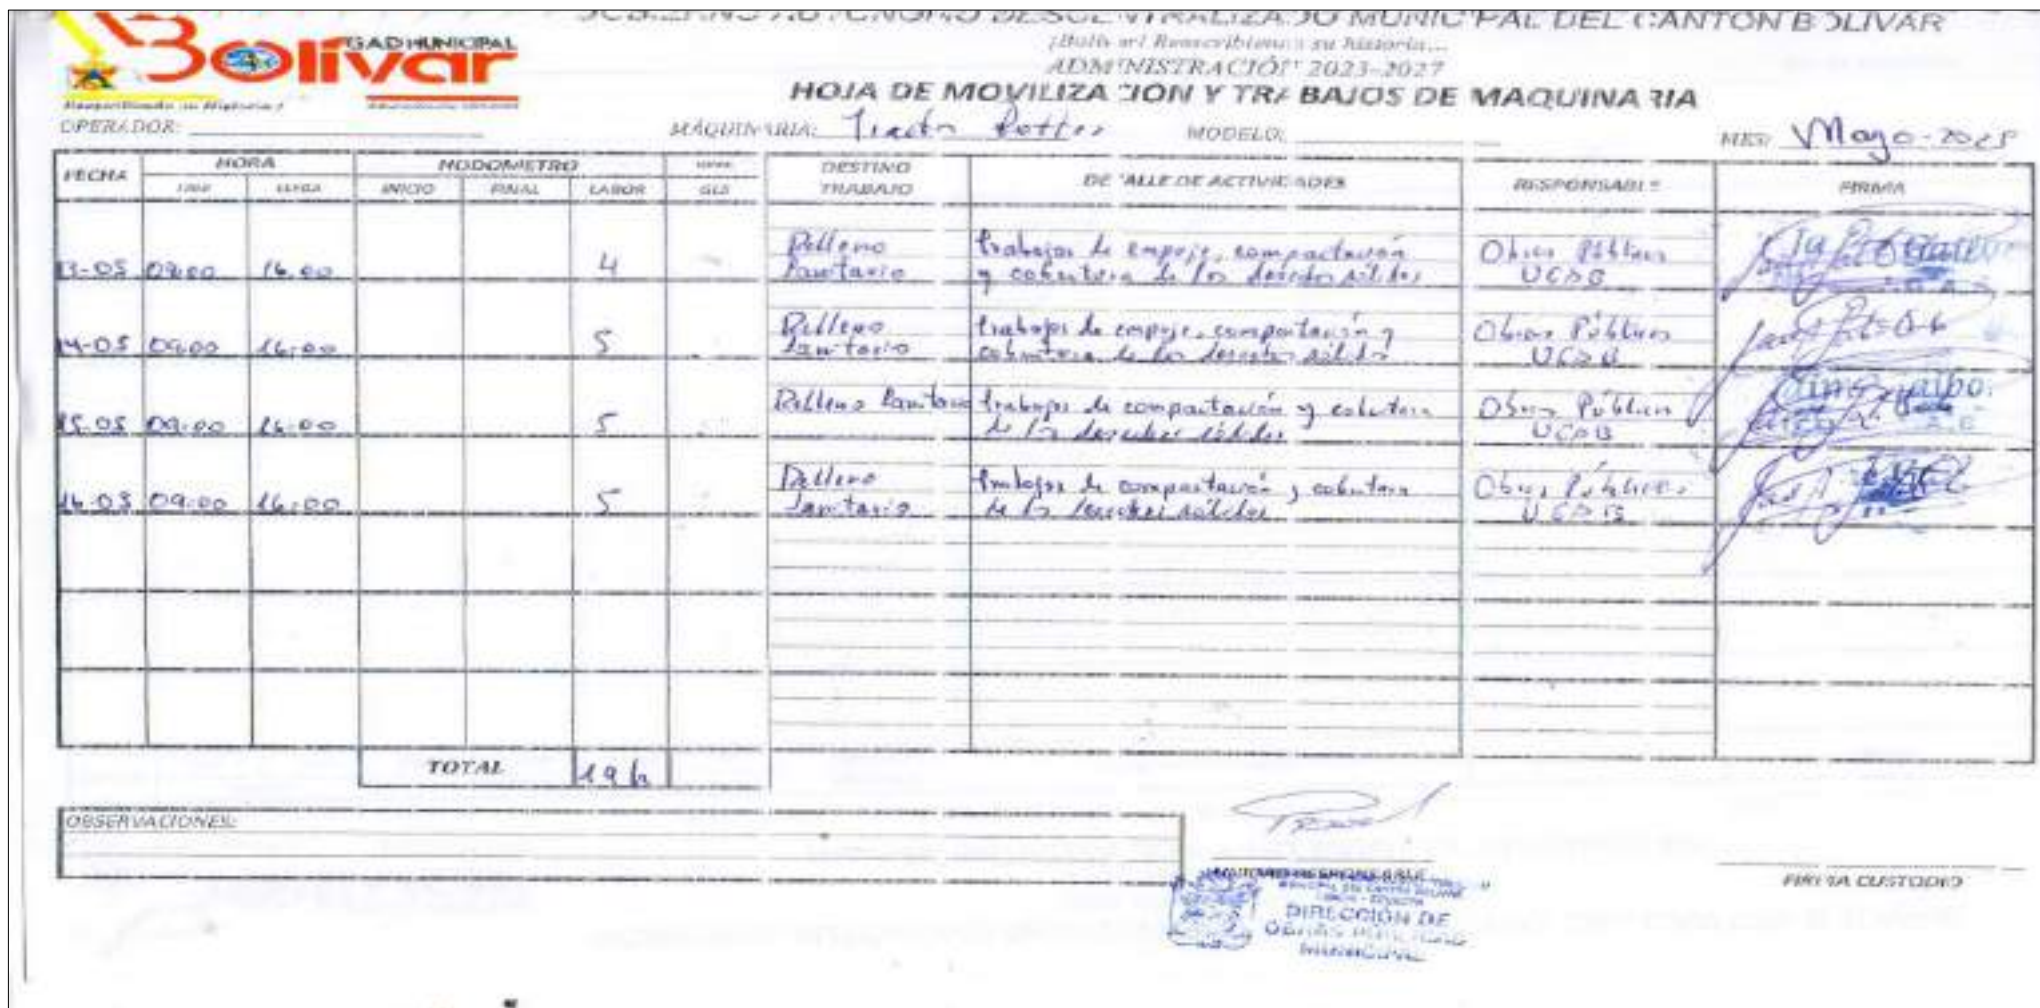 GOBIERNO AUTONOMO DESCENTRALIZADO MUNICIPAL DEL CANTON BOLIVAR
¡Bolívar! Reescribiendo su historia...
ADMINISTRACIÓN 2023-2027
GAD MUNICIPAL
Bolívar
HOJA DE MOVILIZACIÓN Y TRABAJOS DE MAQUINARIA
OPERADOR: MÁQUINARIA: Tractor MODELO: MES: Mayo-2025
FECHA HORA HODOMETRO DESTINO TRABAJO DETALLE DE ACTIVIDADES RESPONSABLE FIRMA
INICIO FINAL LABOR GLS
13-05 09:00 16:00 4 Relleno Sanitario trabajos de empuje, compactación y cobertura de los desechos sólidos Obras Públicas UCAB
14-05 09:00 16:00 5 Relleno Sanitario trabajos de empuje, compactación y cobertura de los desechos sólidos Obras Públicas UCAB
15-05 09:00 16:00 5 Relleno Sanitario trabajos de compactación y cobertura de los desechos sólidos Obras Públicas UCAB
16-05 09:00 16:00 5 Relleno Sanitario trabajos de compactación y cobertura de los desechos sólidos Obras Públicas UCAB
TOTAL 19h
OBSERVACIONES:
FIRMA CUSTODIO
DIRECCIÓN DE
OBRAS PUBLICAS
MUNICIPAL